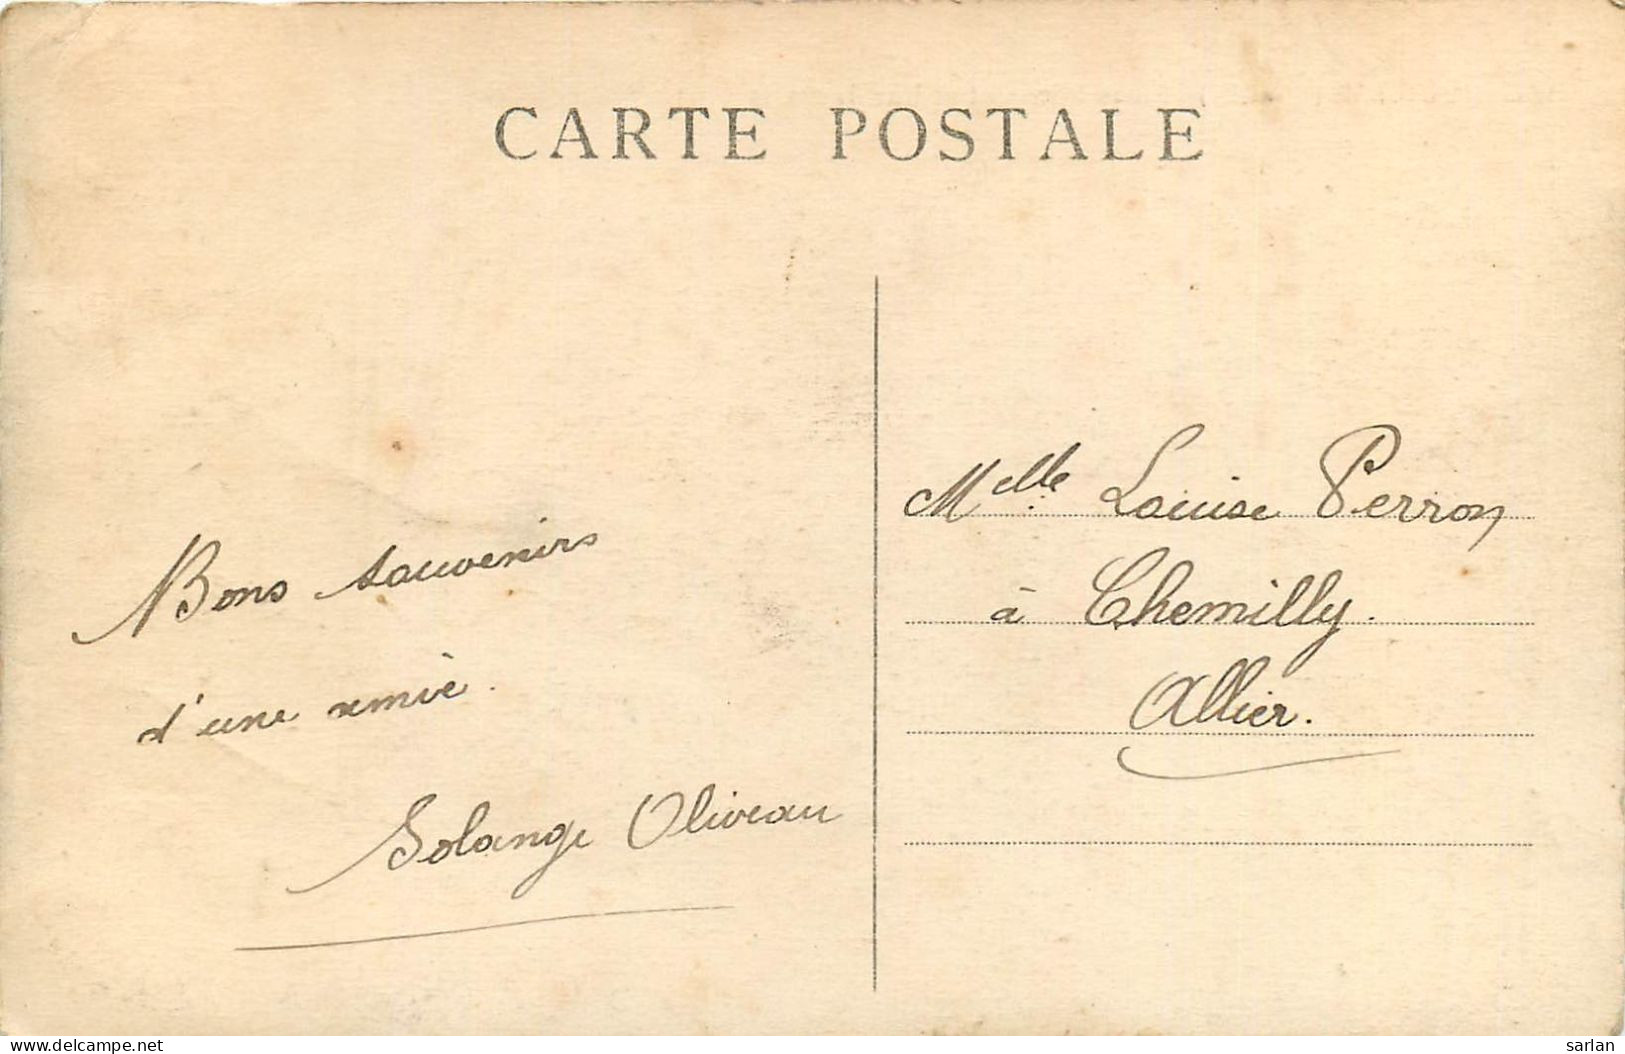 CARTE POSTALE
Bons souvenirs
d'une amie.
Solange Oliveau
Melle. Louise Perron
à Chemilly.
Allier.
delcampe.net
sarlan